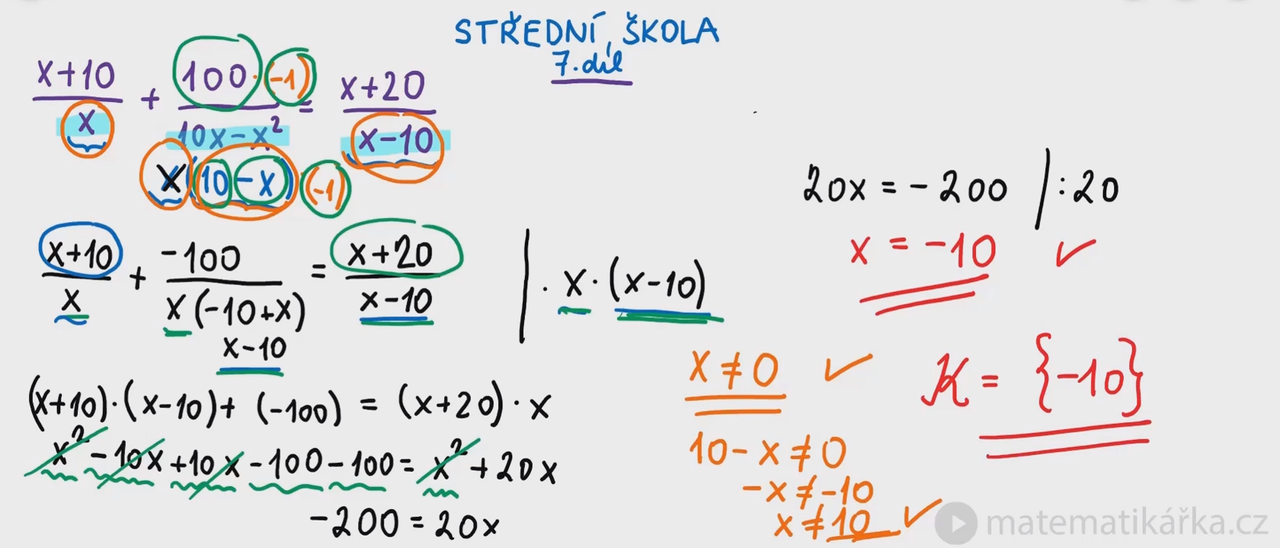 STŘEDNÍ ŠKOLA
7. díl
x+10/x + 100·(-1)/10x-x² = x+20/x-10
x(10-x)(-1)
x+10/x + -100/x(-10+x) = x+20/x-10 | · x · (x-10)
x-10
(x+10)·(x-10)+ (-100) = (x+20)·x
x²-10x+10x-100-100= x²+20x
-200=20x
20x = -200 | :20
x = -10 ✓
x≠0 ✓
10-x≠0
-x≠-10
x≠10 ✓
K = {-10}
matematikářka.cz